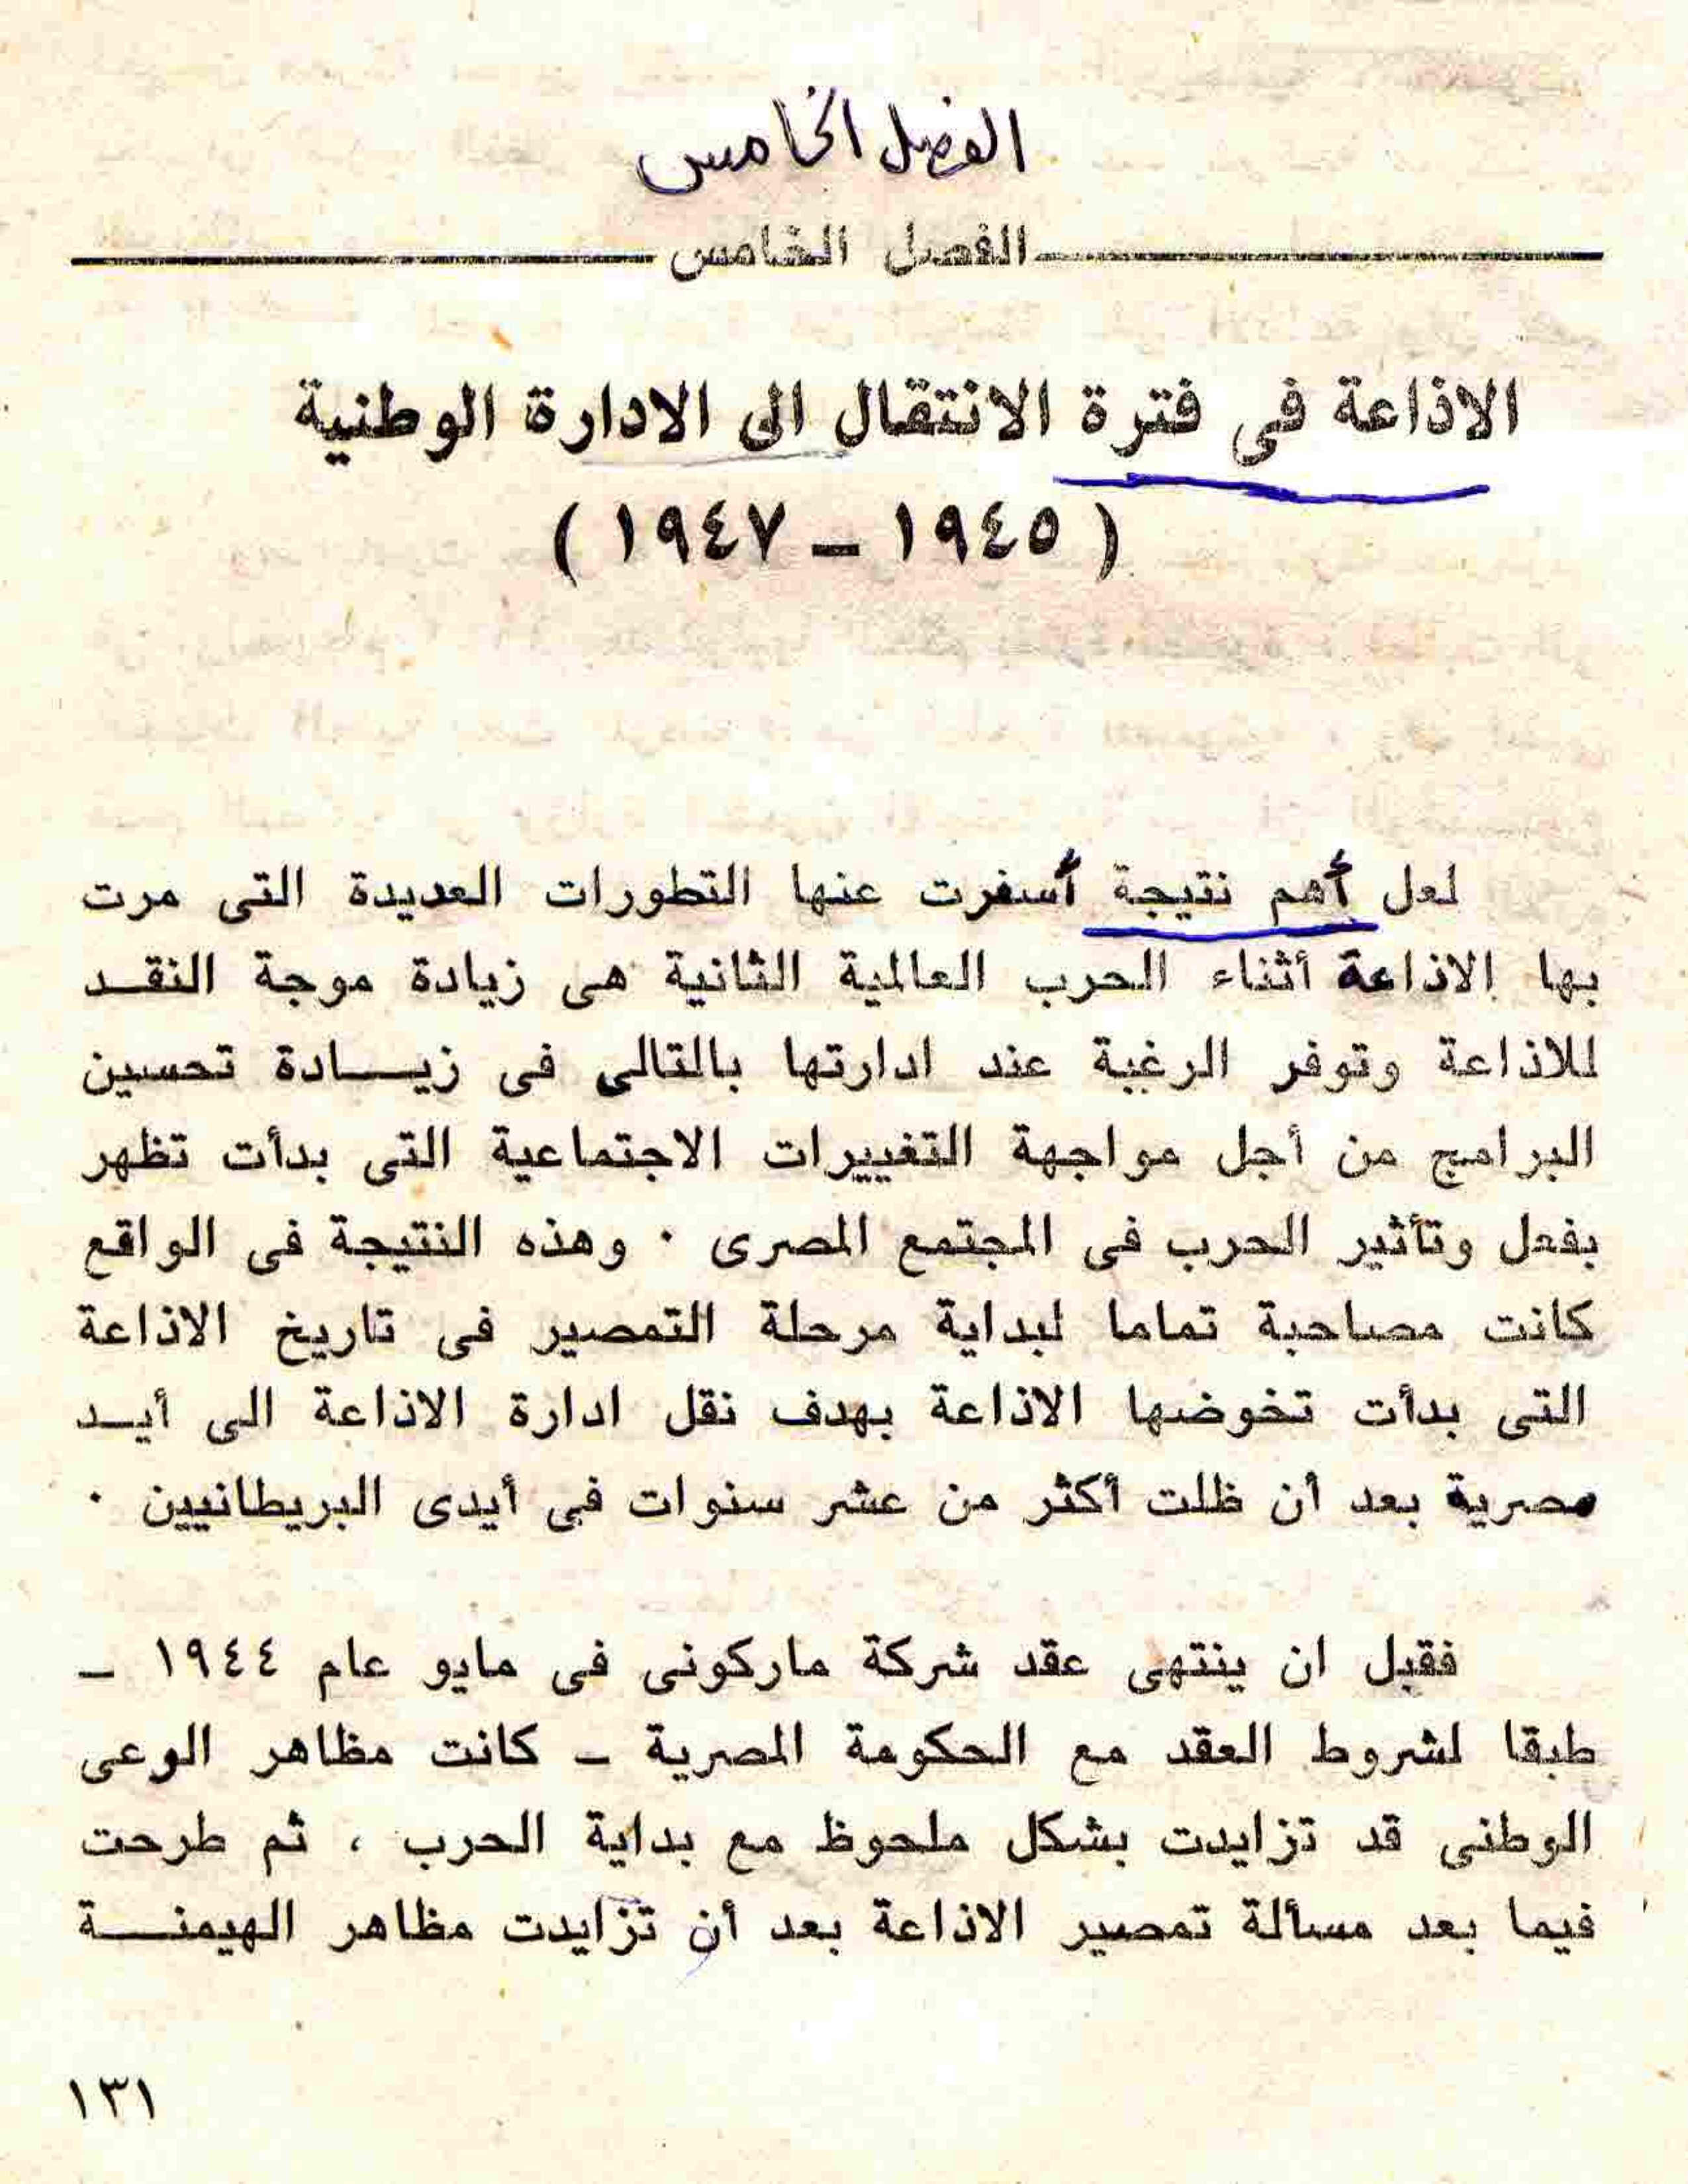 الفصل الخامس
الفصل الخامس
الاذاعة فى فترة الانتقال الى الادارة الوطنية
( ١٩٤٥ ـ ١٩٤٧ )
لعل أهم نتيجة أسفرت عنها التطورات العديدة التى مرت
بها الاذاعة أثناء الحرب العالمية الثانية هى زيادة موجة النقـد
للاذاعة وتوفر الرغبة عند ادارتها بالتالى فى زيـــادة تحسين
البرامج من أجل مواجهة التغييرات الاجتماعية التى بدأت تظهر
بفعل وتأثير الحرب فى المجتمع المصرى ٠ وهذه النتيجة فى الواقع
كانت مصاحبة تماما لبداية مرحلة التمصير فى تاريخ الاذاعة
التى بدأت تخوضها الاذاعة بهدف نقل ادارة الاذاعة الى أيـد
مصرية بعد أن ظلت أكثر من عشر سنوات فى أيدى البريطانيين ٠
فقبل ان ينتهى عقد شركة ماركونى فى مايو عام ١٩٤٤ ـ
طبقا لشروط العقد مع الحكومة المصرية ـ كانت مظاهر الوعى
الوطنى قد تزايدت بشكل ملحوظ مع بداية الحرب ، ثم طرحت
فيما بعد مسألة تمصير الاذاعة بعد أن تزايدت مظاهر الهيمنــة
١٣١